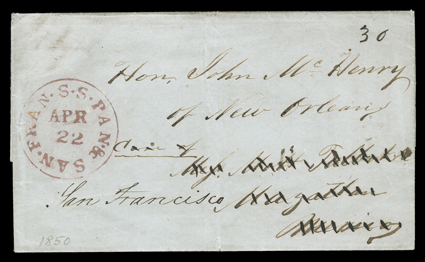 30
Hon. John McHenry
of New Orleans
Care of
San Francisco
S.S. PAN. & SAN. FRAN.
APR
22
1850